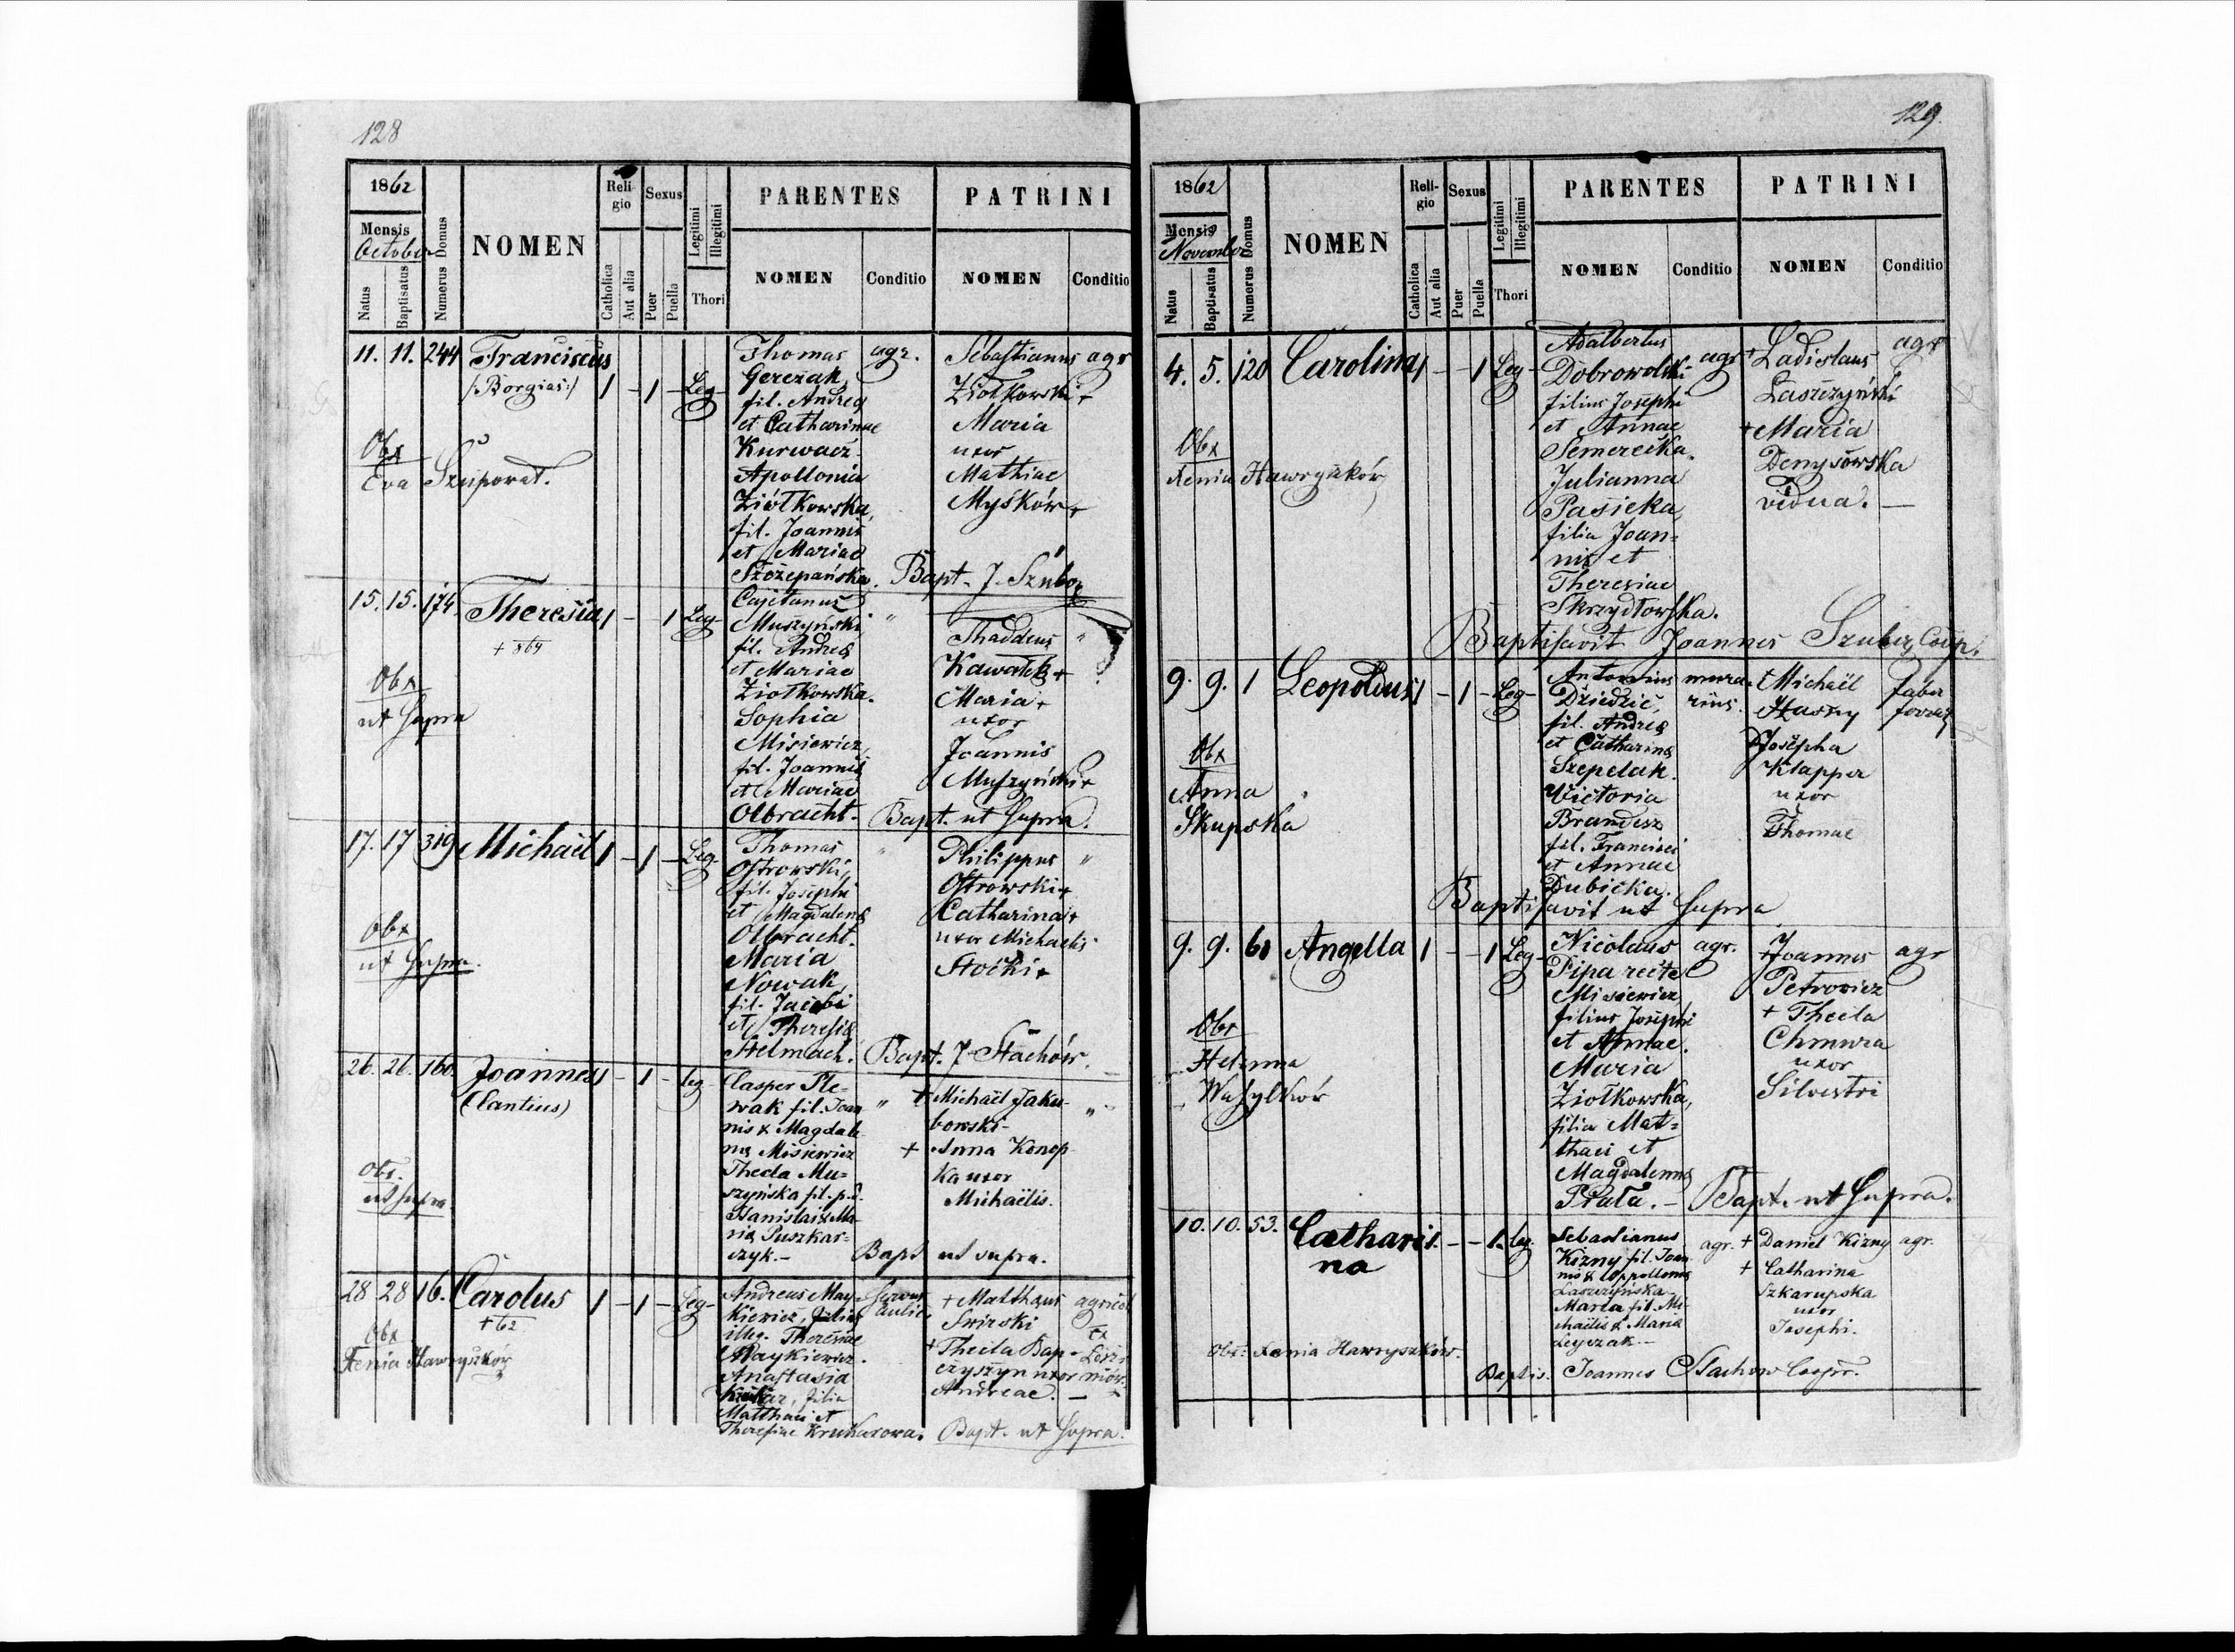 128
1862
Mensis
October
Natus
Baptisatus
Numerus Domus
NOMEN
Reli-
gio
Catholica
Aut alia
Sexus
Puer
Puella
Legitimi
Illegitimi
Thori
PARENTES
NOMEN
Conditio
PATRINI
NOMEN
Conditio
11. 11. 244 Franciscus
/:Borgias:/ 1 - 1 - Leg-
Obx
Eva Szuporat.
Thomas agr.
Gerczak,
fil. Andreę
et Catharinae
Kurwacz.
Apollonia
Ziółkowska,
fil. Joannis
et Mariae
Szczepańska.
Sebastianus agr
Ziołkowski +
Maria
uxor
Mathiae
Myśków +
Bapt. J. Szuber
15. 15. 174. Theresia 1 - 1 Leg-
+ 869
Obx
ut Supra
Cajetanus
Muszyński, "
fil. Andreę
et Mariae
Ziołkowska.
Sophia
Misiewicz,
fil. Joannis
et Mariae
Olbracht.
Thaddeus "
Kawałek +
Maria +
uxor
Joannis
Muszyński +
Bapt. ut Supra.
17. 17 319 Michaël 1 - 1 - Leg-
Obx
ut Supra.
Thomas "
Ostrowski,
fil. Josephi
et Magdalenę
Olbracht.
Maria
Nowak,
fil. Jacobi
et Theresię
Stelmach.
Philippus "
Ostrowski +
Catharina +
uxor Michaelis
Stocki +
Bapt. J. Stachów.
26. 26. 160. Joannes 1 - 1 - leg
(Cantius)
Obx.
ut supra.
Casper Ple-
wak fil. Joan "
nis & Magdale
nę Misiewicz
Thecla Mu-
szyńska fil. p.d.
Stanislai & Ma-
rię Puszkar-
czyk.-
+ Michaël Jaku- "
bowski-
+ Anna Konop
ka uxor
Michaëlis.
Bapt ut supra.
28 28 16. Carolus 1 - 1 - Leg-
+ 62
Obx
Xenia Hawryszków
Andreas May- Servus
kiewicz, filius aulic.
illeg. Theresiae
Maykiewicz.
Anastasia
filia
Matthaei et
Theresiae Krukarowa.
+ Matthaeus agricol
Swirski ex
+ Thecla Bap-
czyszyn uxor
Andreae. -
Bapt. ut Supra.
129
1862
Mensis
November
Natus
Baptisatus
Numerus Domus
NOMEN
Reli-
gio
Catholica
Aut alia
Sexus
Puer
Puella
Legitimi
Illegitimi
Thori
PARENTES
NOMEN
Conditio
PATRINI
NOMEN
Conditio
4. 5. 120 Carolina 1 - - 1 Leg-
Obx
Xenia Hawryszków
Adalbertus
Dobrowolski agr
filius Josephi
et Annae
Semerecka.
Julianna
Pasieka,
filia Joan=
nis et
Theresiae
Skrzydłowska.
+ Ladislaus agr
Łaszczyński
+ Maria
Denysowska
vidua. -
Baptisavit Joannes Szuber Coop.
9. 9. 1 Leopoldus 1 - 1 - Leg-
Obx
Anna
Skupska
Antonius mura-
Dziedzic, rius.
fil. Andreę
et Catharinę
Szepelak.
Victoria
Brandisz
fil. Francisci
et Annae
Dubicka.
+ Michaël faber
Hasny ferrar
+ Josepha
Klapper
uxor
Thomae
Baptisavit ut Supra
9. 9. 60 Angella 1 - - 1 Leg-
Obx
Helenna
Wasylków
Nicolaus agr.
Pipa recte
Misiewicz,
filius Josephi
et Annae.
Maria
Ziołkowska,
filia Mat=
thaei et
Magdalennę
Prata. -
+ Joannes agr
Petrowicz
+ Thecla
Chmura
uxor
Silvestri
Bapt. ut Supra.
10. 10. 53. Cathari- 1. - - 1. leg.
na
Obx: Xenia Hawryszków.
Sebastianus
Kizny fil. Joan- agr.
nis & Appollonię
Łaszczyńska
Maria fil. Mi-
chaëlis & Marię
Leyczak.-
+ Daniel Kizny agr.
+ Catharina
Szkarupska
uxor
Josephi.
Baptis. Joannes Stachow Coopr.